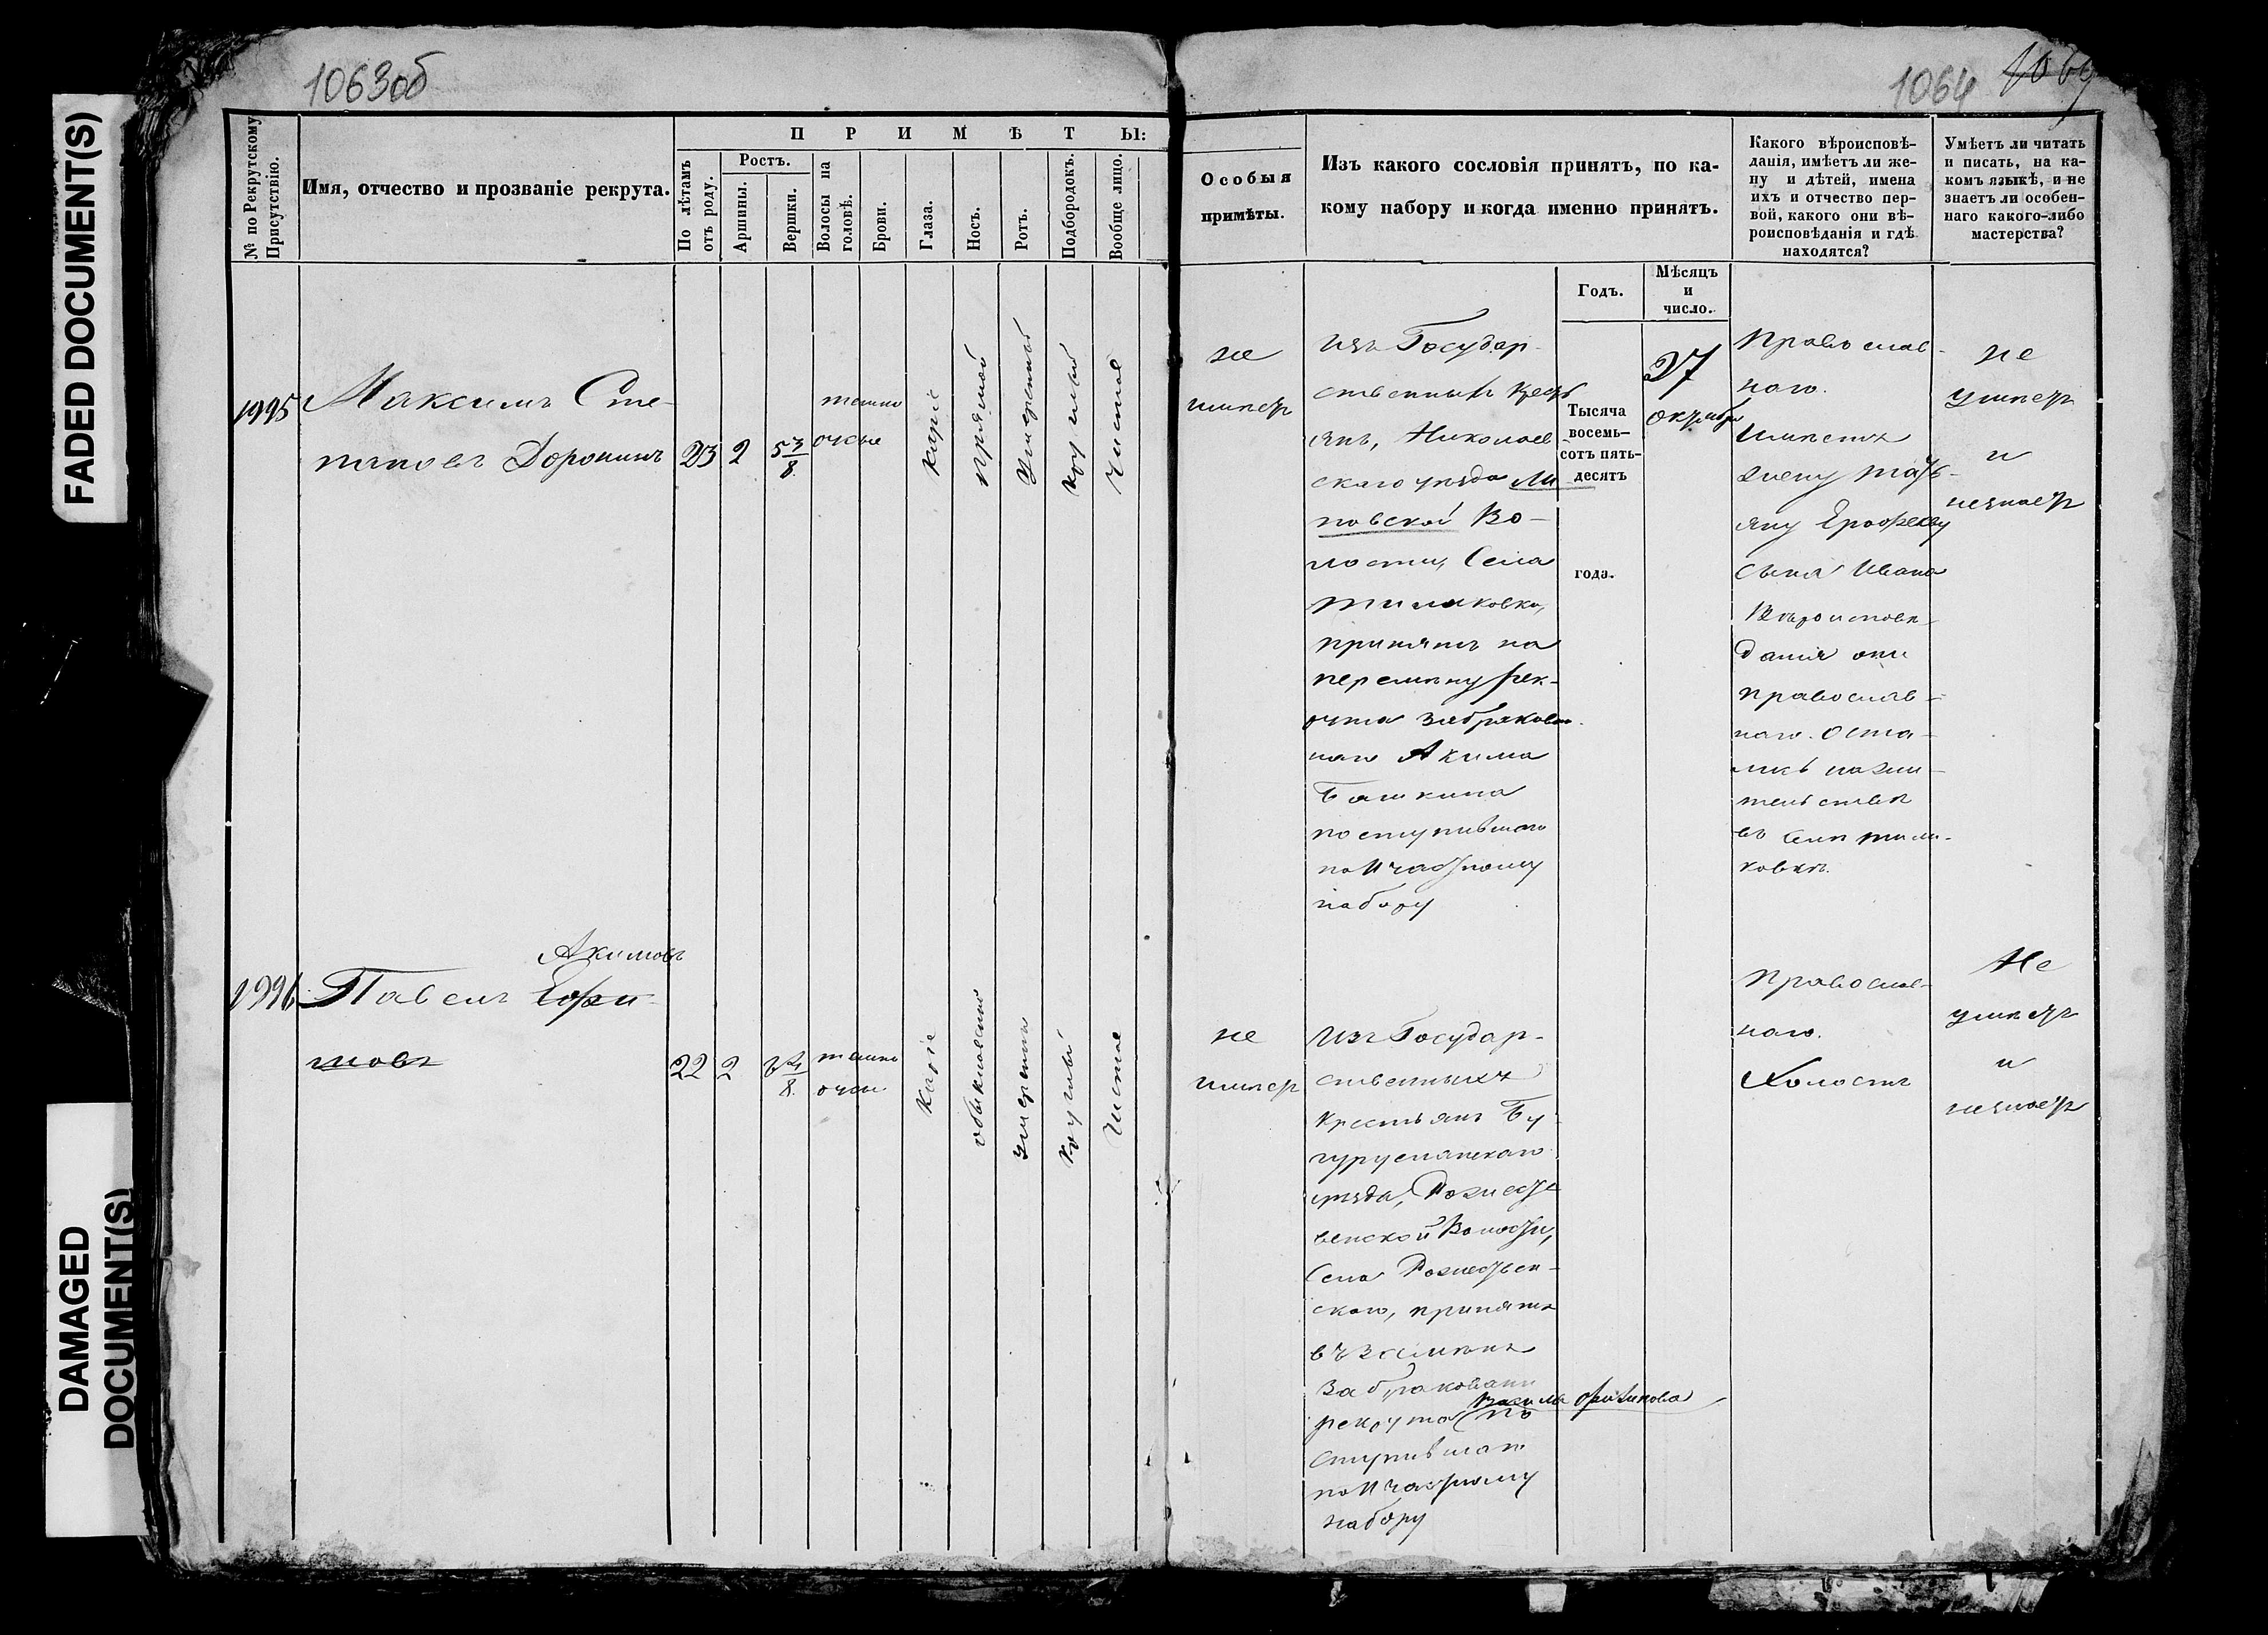 FADED DOCUMENT(S)
DAMAGED
DOCUMENT(S)
1063об
1064
№ по Рекрутскому
Присутствію.
Имя, отчество и прозваніе рекрута.
П Р И М Ѣ Т Ы:
По лѣтамъ
отъ роду.
Ростъ.
Аршины.
Вершки.
Волосы на
головѣ.
Брови.
Глаза.
Носъ.
Ротъ.
Подбородокъ.
Вообще лицо.
Особыя
примѣты.
Изъ какого сословія принятъ, по ка-
кому набору и когда именно принятъ.
Какого вѣроисповѣ-
данія, имѣетъ ли же-
ну и дѣтей, имена
ихъ и отчество пер-
вой, какого они вѣ-
роисповѣданія и гдѣ
находятся?
Умѣетъ ли читать
и писать, на ка-
комъ языкѣ, и не
знаетъ ли особен-
наго какого-либо
мастерства?
Годъ.
Мѣсяцъ
и
число.
1995
Максимъ Сте-
пановъ Доронинъ
23
2
5 3/8
темно
русые
Каріе
прямой
Умеренный
круглый
Чистое
не
имеетъ
изъ Государ-
ственныхъ крест
янъ, Николаев
скаго уезда
повской Во-
лости, Села
принятъ на
перемену рек-
рута забракован
наго Акима
Башкина
поступившаго
по II частному
набору
Тысяча
восемь-
сотъ пять-
десятъ
года.
27
октября
Православ-
наго.
Имѣетъ
жену Тать-
яну Ерофееву
сына Ивана
Вѣроисповѣ-
данія они
православ-
наго. Оста-
лись на жи-
тельствѣ
въ селѣ
ковкѣ.
не
умѣетъ
и
незнаетъ
1996
Акимовъ
Павелъ
мовъ
22
2
темно
Каріе
обыкновенный
умеренный
Круглый
Чистое
не
имеетъ
Изъ Государ-
ственныхъ
Крестьянъ Бу-
гурусланскаго
уезда, Рождест
венской Волости,
Села Рождествен-
скаго, принятъ
въ замѣнъ
забракован
рекрута по
ступившаго
по II частному
набору
Православ-
наго.
Холостъ
Не
умѣетъ
и
незнаетъ